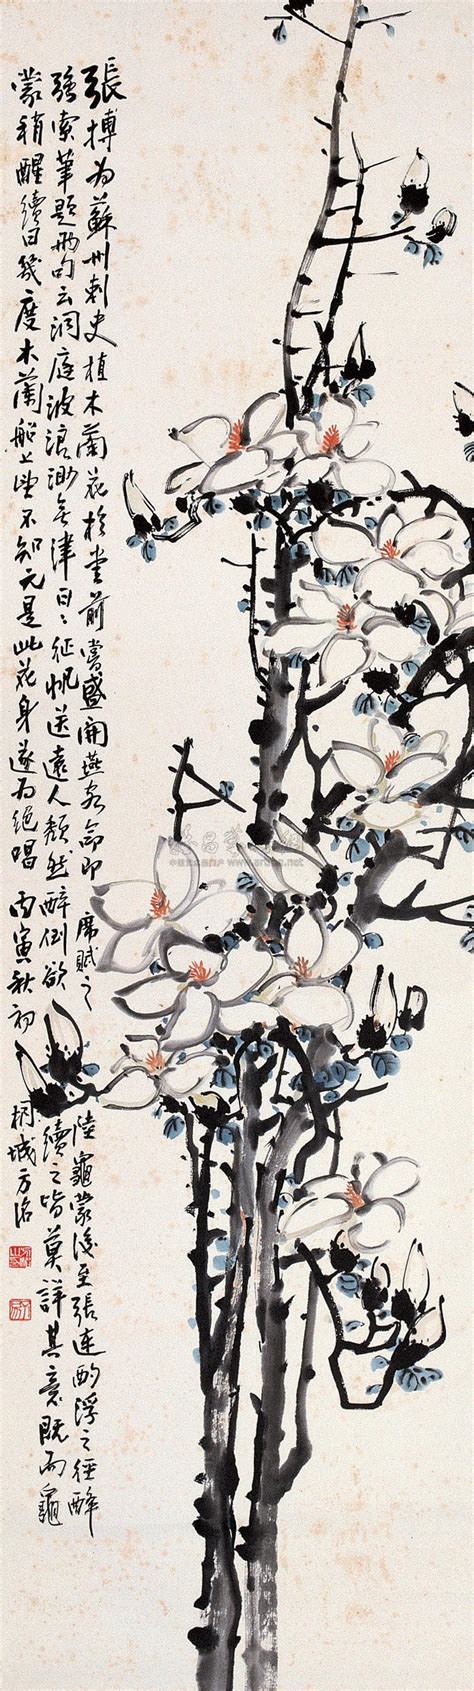 張搏為蘇州刺史植木蘭花於堂前嘗盛開燕客命即席賦之陸龜蒙後至張連酌浮之徑醉
強索筆題兩句云洞庭波浪渺無津日〻征帆送遠人頹然醉倒欲續之皆莫詳其意既而龜
蒙稍醒續曰幾度木蘭船上望不知元是此花身遂為絕唱 丙寅秋初 桐城方治